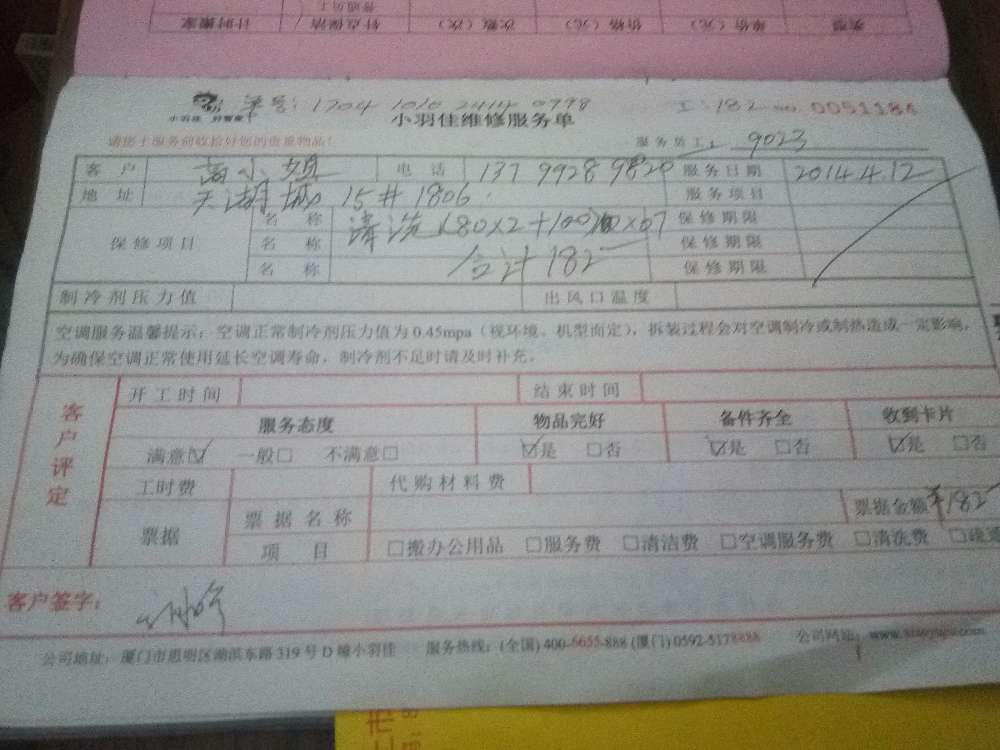 计时搬家 针点保洁 次数（次） 价格（元） 单价（元） 类型
小羽佳 好管家 单号：1204 1010 2414 0798 工：182 no. 0051184
小羽佳维修服务单
请您于服务前收拾好您的贵重物品！ 服务员工： 9023
客户 小姐 电话 137 9928 9820 服务日期 2014.4.12
地址 天湖城 15# 1806 服务项目
保修项目 名称 清洗（80×2+100）×0.7 保修期限
名称 合计182 保修期限
名称 保修期限
制冷剂压力值 出风口温度
空调服务温馨提示：空调正常制冷剂压力值为0.45mpa（视环境、机型而定），拆装过程会对空调制冷或制热造成一定影响，
为确保空调正常使用延长空调寿命，制冷剂不足时请及时补充。
客户评定 开工时间 结束时间
服务态度 物品完好 备件齐全 收到卡片
满意☑ 一般□ 不满意□ ☑是 □否 ☑是 □否 ☑是 □否
工时费 代购材料费
票据 票据名称 票据金额 ¥182
项目 □搬办公用品 □服务费 □清洁费 □空调服务费 □清洗费 □疏通
客户签字：
公司地址：厦门市思明区湖滨东路319号D幢小羽佳 服务热线：(全国) 400-6655-888 (厦门) 0592-5178888 公司网址：www.xiaoyujia.com